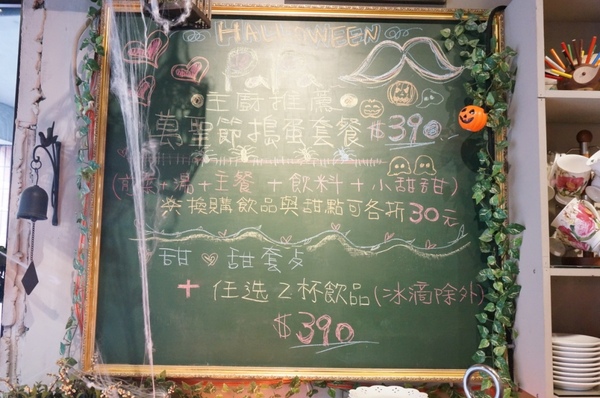 HALLOWEEN
主廚推薦
萬聖節搗蛋套餐 $390.-
(前菜+湯+主餐+飲料+小甜甜)
※換購飲品與甜點可各折30元
甜♡甜套餐
+任选2杯飲品(冰滴除外)
$390